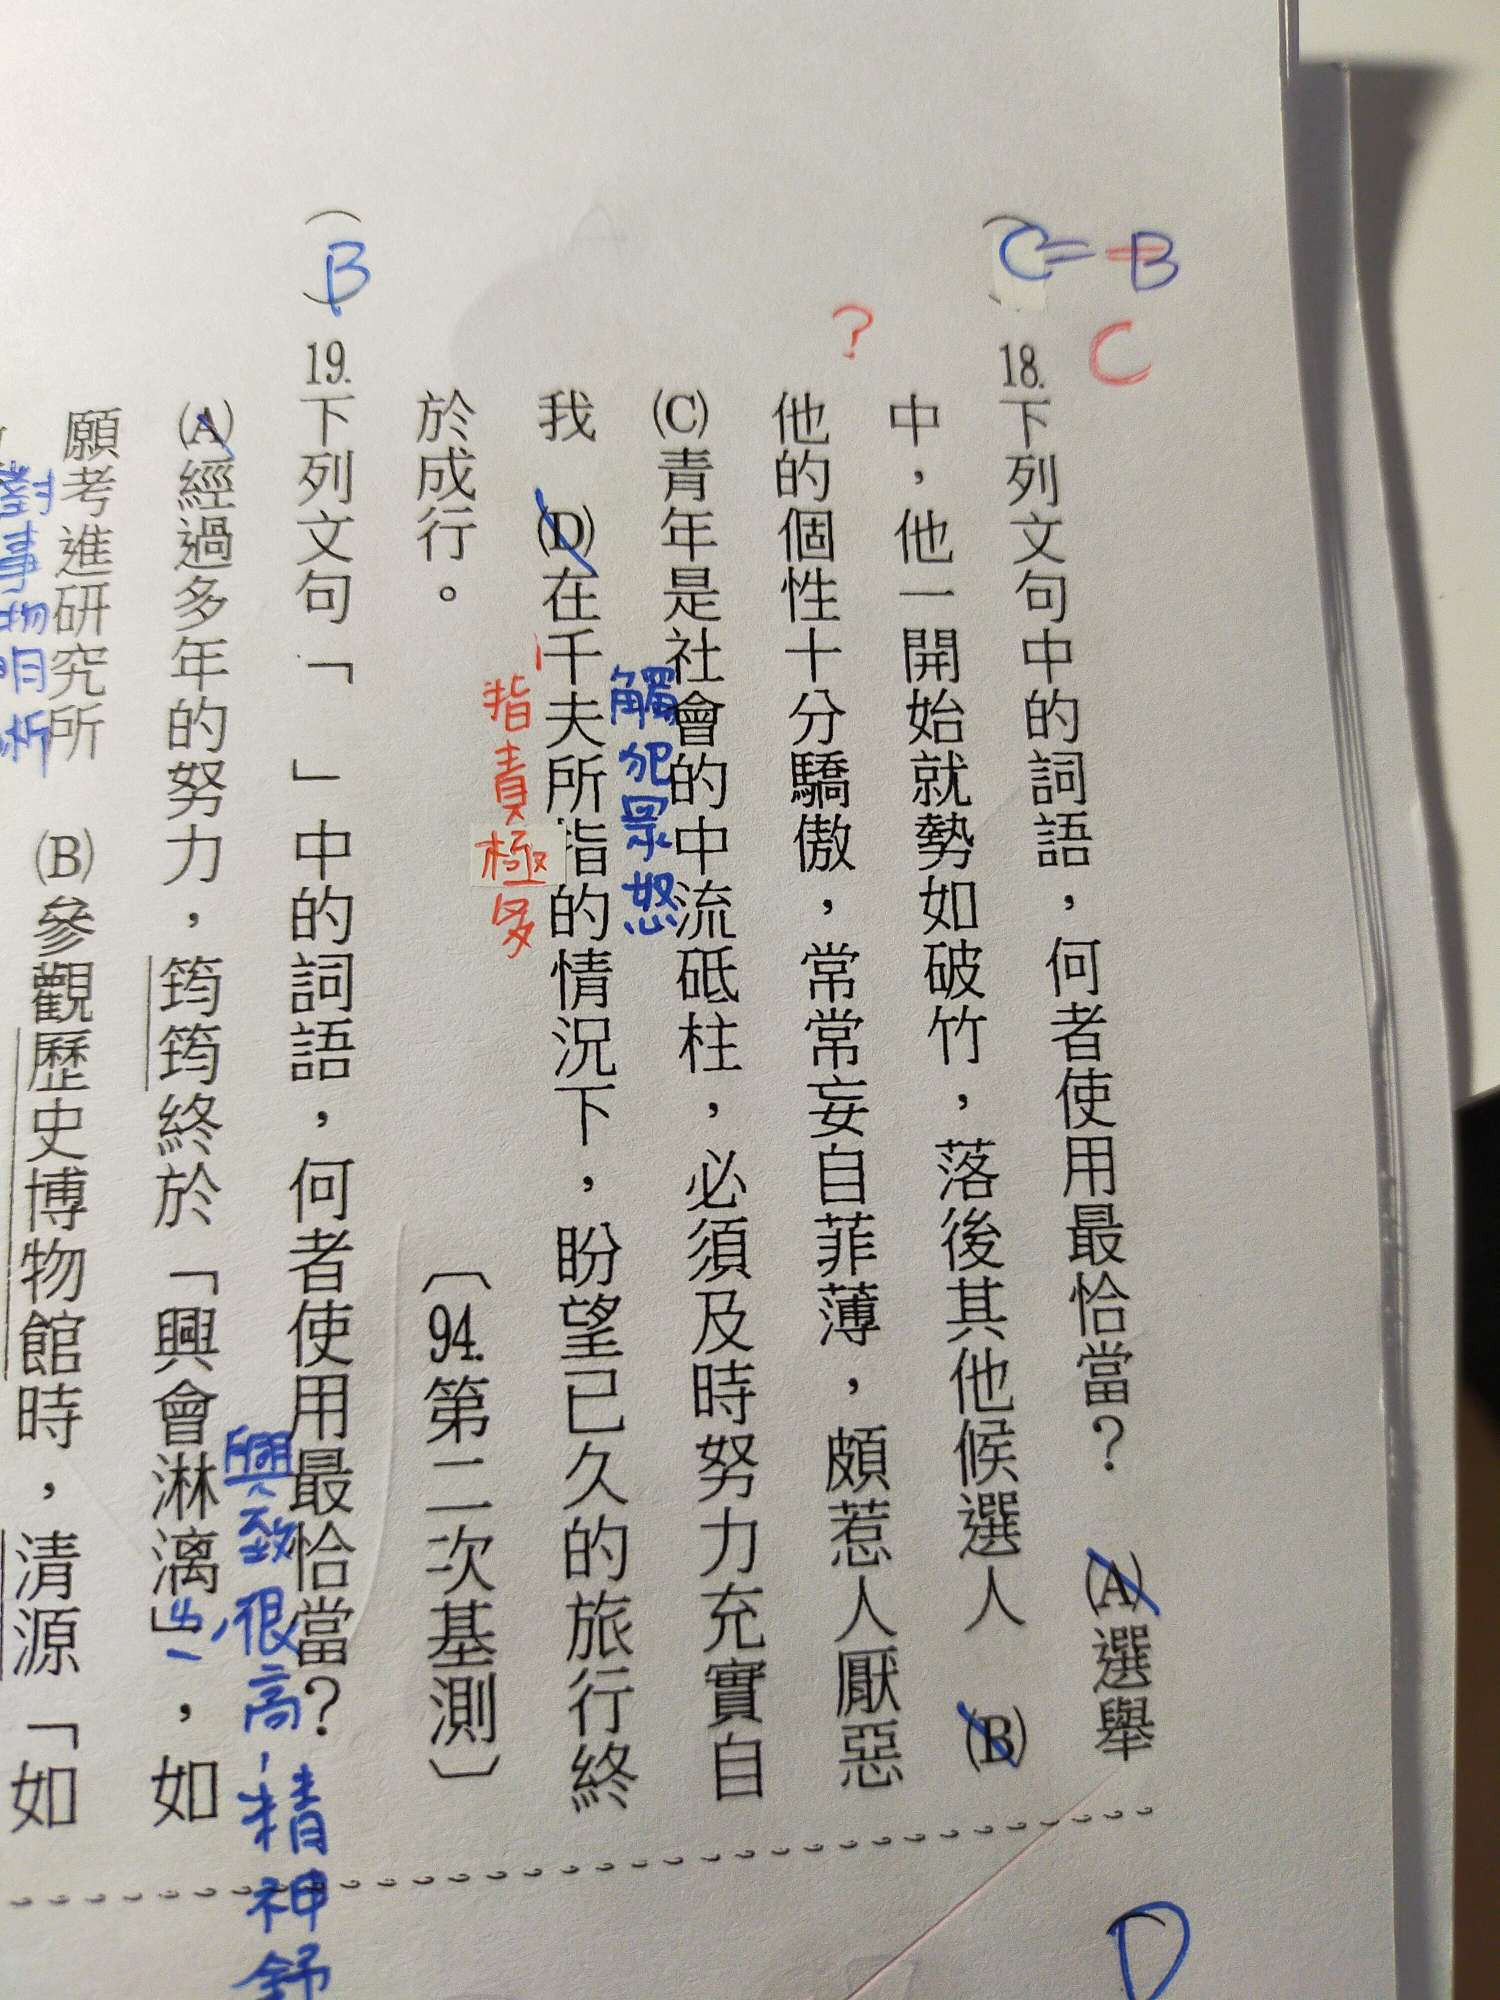 C=B
C
18.下列文句中的詞語，何者使用最恰當？　(A)選舉
中，他一開始就勢如破竹，落後其他候選人　(B)
他的個性十分驕傲，常常妄自菲薄，頗惹人厭惡
?
(C)青年是社會的中流砥柱，必須及時努力充實自
觸犯眾怒
我　(D)在千夫所指的情況下，盼望已久的旅行終
指責極多
於成行。　〔94.第二次基測〕
(B)
19.下列文句「　」中的詞語，何者使用最恰當？
興致很高，精神舒
(A)經過多年的努力，筠筠終於「興會淋漓」，如
願考進研究所　(B)參觀歷史博物館時，清源「如
對事物明晰
D